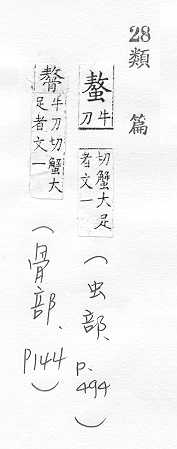 28
類篇
螯牛
刀
切蟹大足
者文一
（虫部、p.494）
牛刀切蟹大
足者文一
（骨部、P144）